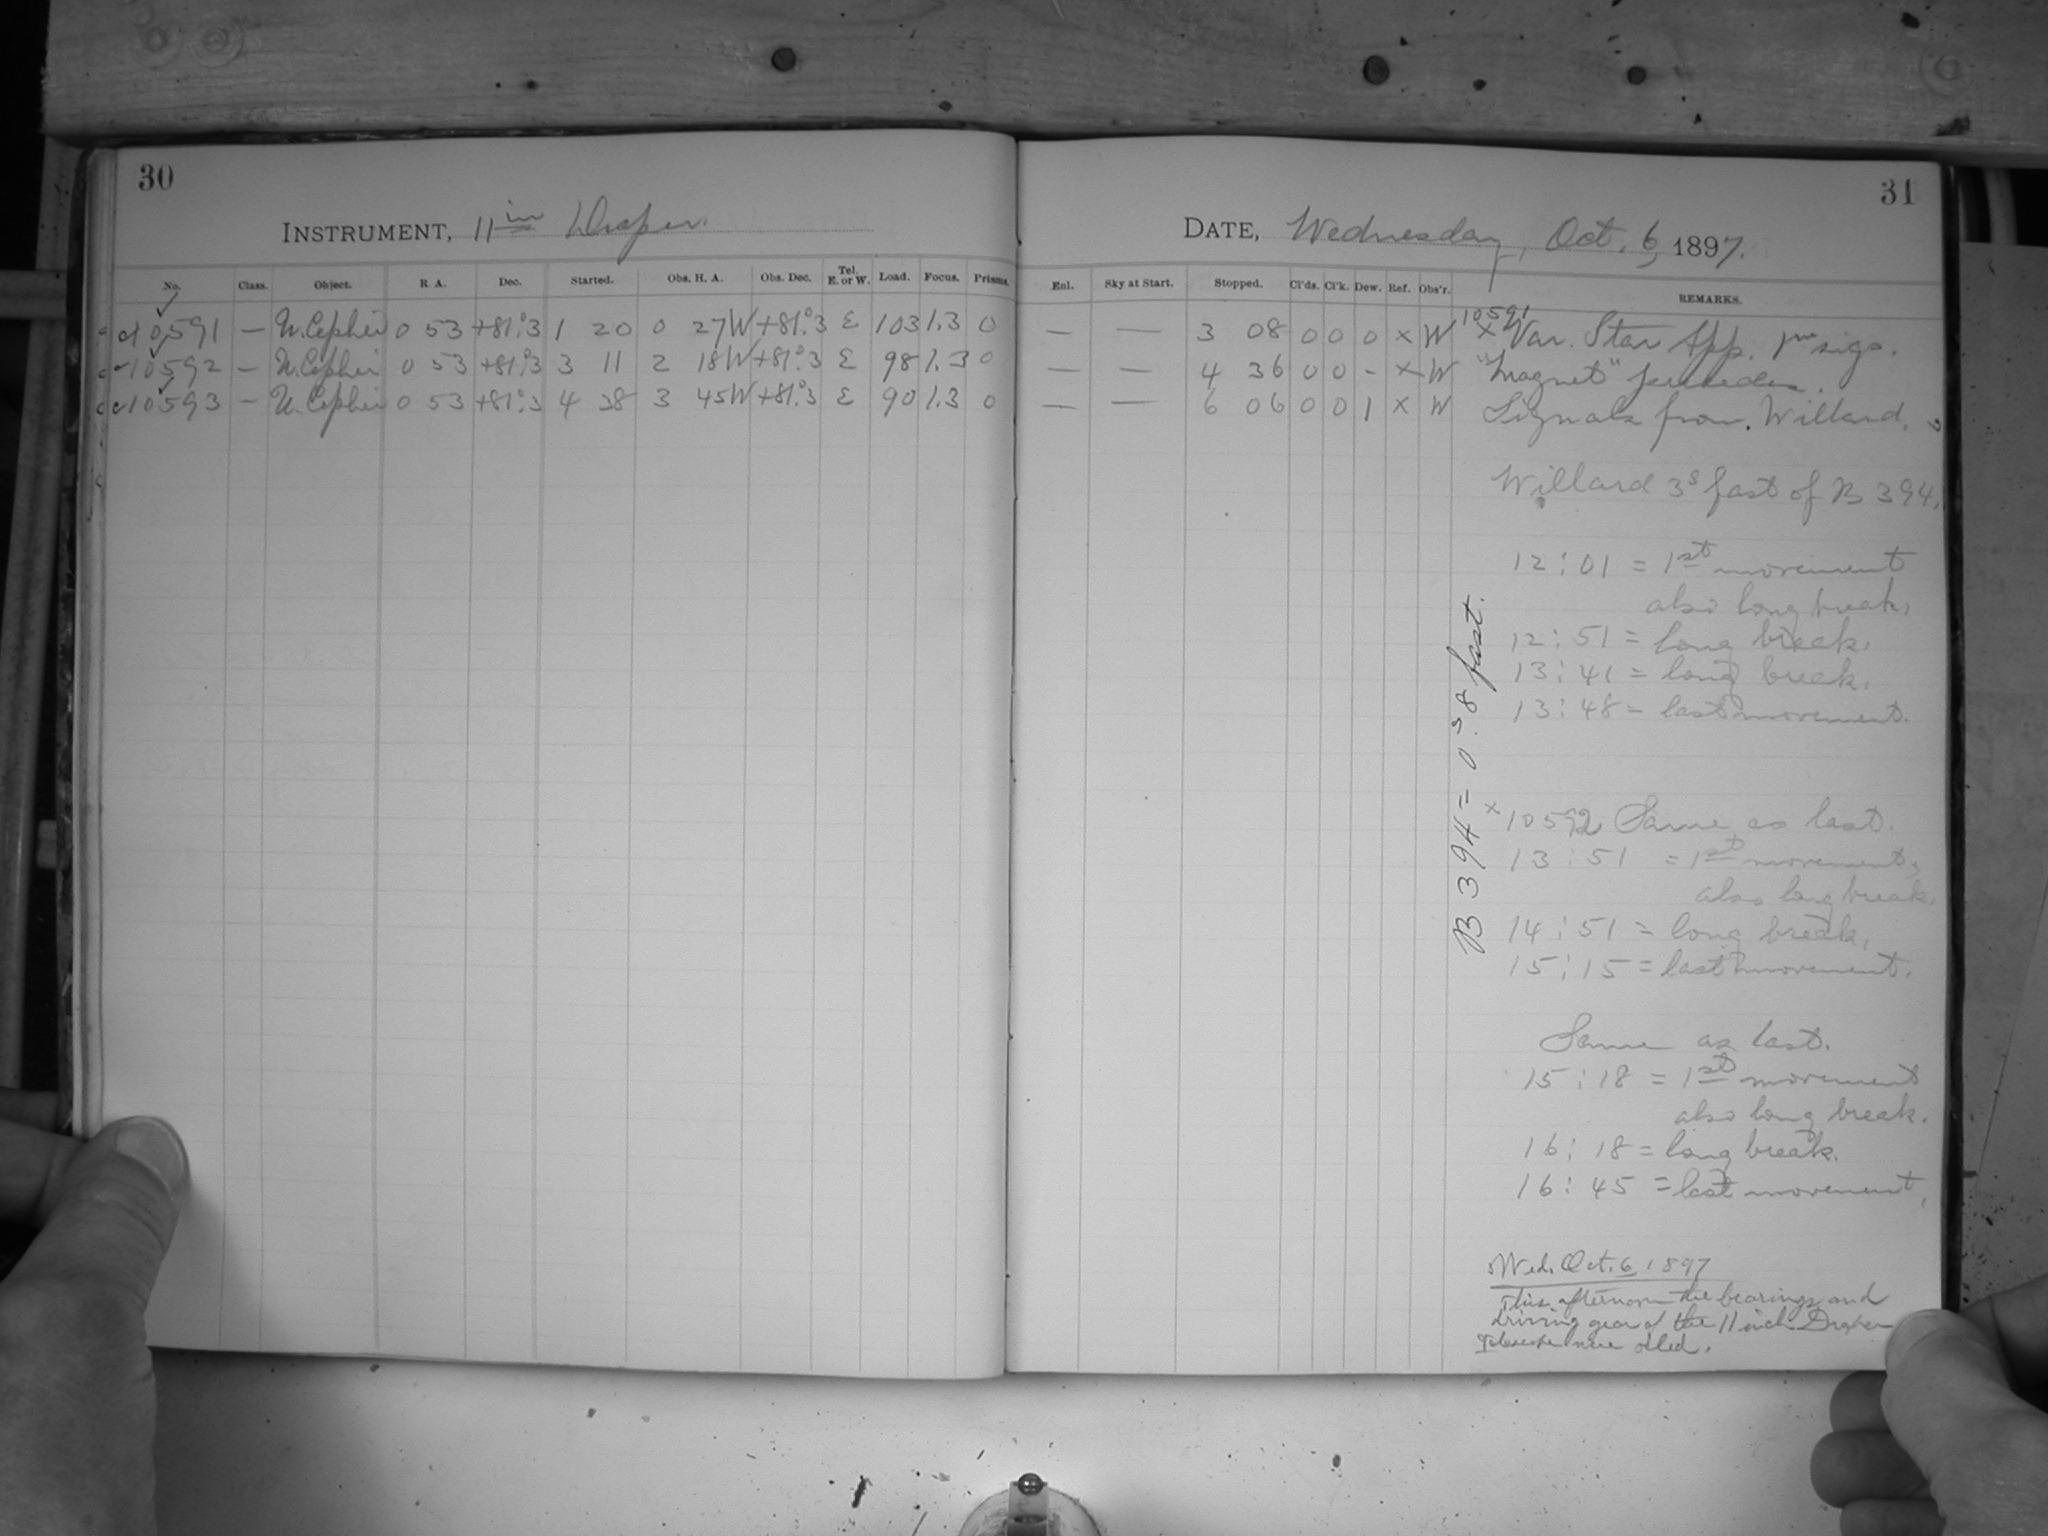 30
INSTRUMENT, 11in Draper.
No. Class. Object. R. A. Dec. Started. Obs. H. A. Obs. Dec. Tel. E. or W. Load. Focus. Prisms.
c10591 — U. Cephei 0 53 +81°.3 1 20 0 27W +81°.3 E 103 1.3 0
c10592 — U. Cephei 0 53 +81°.3 3 11 2 18W +81°.3 E 98 1.3 0
c10593 — U. Cephei 0 53 +81°.3 4 38 3 45W +81°.3 E 90 1.3 0
31
DATE, Wednesday, Oct. 6, 1897.
Enl. Sky at Start. Stopped. Cl'ds. Cl'k. Dew. Ref. Obs'r. REMARKS.
— — 3 08 0 0 0 × W 10591 × Var. Star App. 1m sigs.
— — 4 36 0 0 - × W "Magnet"
— — 6 06 0 0 1 × W Signals from Willard.
Willard 3s fast of B 394.
12:01 = 1st movement
also long break.
12:51 = long break.
13:41 = long break.
13:48 = last movement.
B 394 = 0s.8 fast.
×10592 Same as last.
13:51 = 1st movement,
also long break.
14:51 = long break.
15:15 = last movement.
Same as last.
15:18 = 1st movement
also long break.
16:18 = long break.
16:45 = last movement.
Wed. Oct. 6, 1897
This afternoon the bearings and
driving gear of the 11 inch Draper
Telescope were oiled.